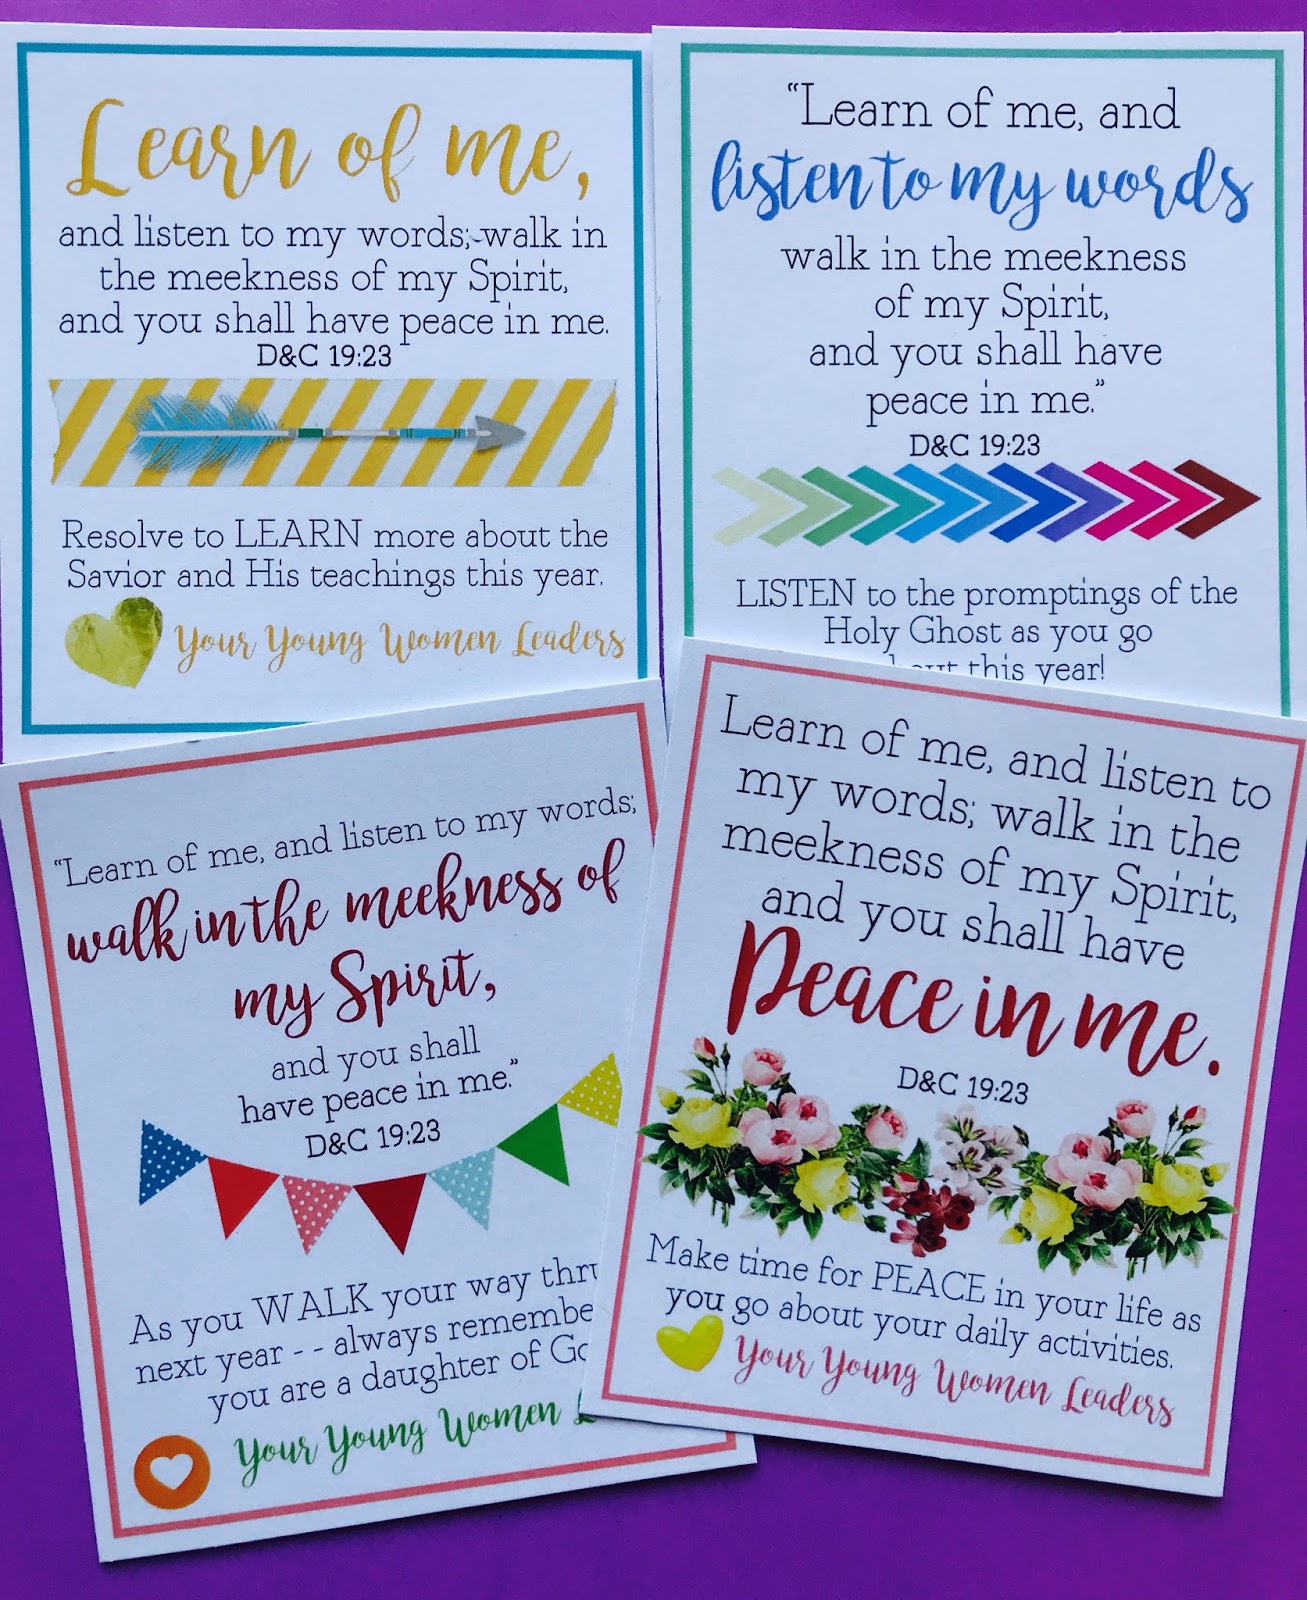 Learn of me,
and listen to my words; walk in
the meekness of my Spirit,
and you shall have peace in me.
D&C 19:23
Resolve to LEARN more about the
Savior and His teachings this year.
Your Young Women Leaders
“Learn of me, and
listen to my words
walk in the meekness
of my Spirit,
and you shall have
peace in me.”
D&C 19:23
LISTEN to the promptings of the
Holy Ghost as you go
this year!
“Learn of me, and listen to my words;
walk in the meekness of
my Spirit,
and you shall
have peace in me.”
D&C 19:23
As you WALK your way
next year - - always
you are a daughter of
Your Young Women
Learn of me, and listen to
my words; walk in the
meekness of my Spirit,
and you shall have
Peace in me.
D&C 19:23
Make time for PEACE in your life as
you go about your daily activities.
Your Young Women Leaders